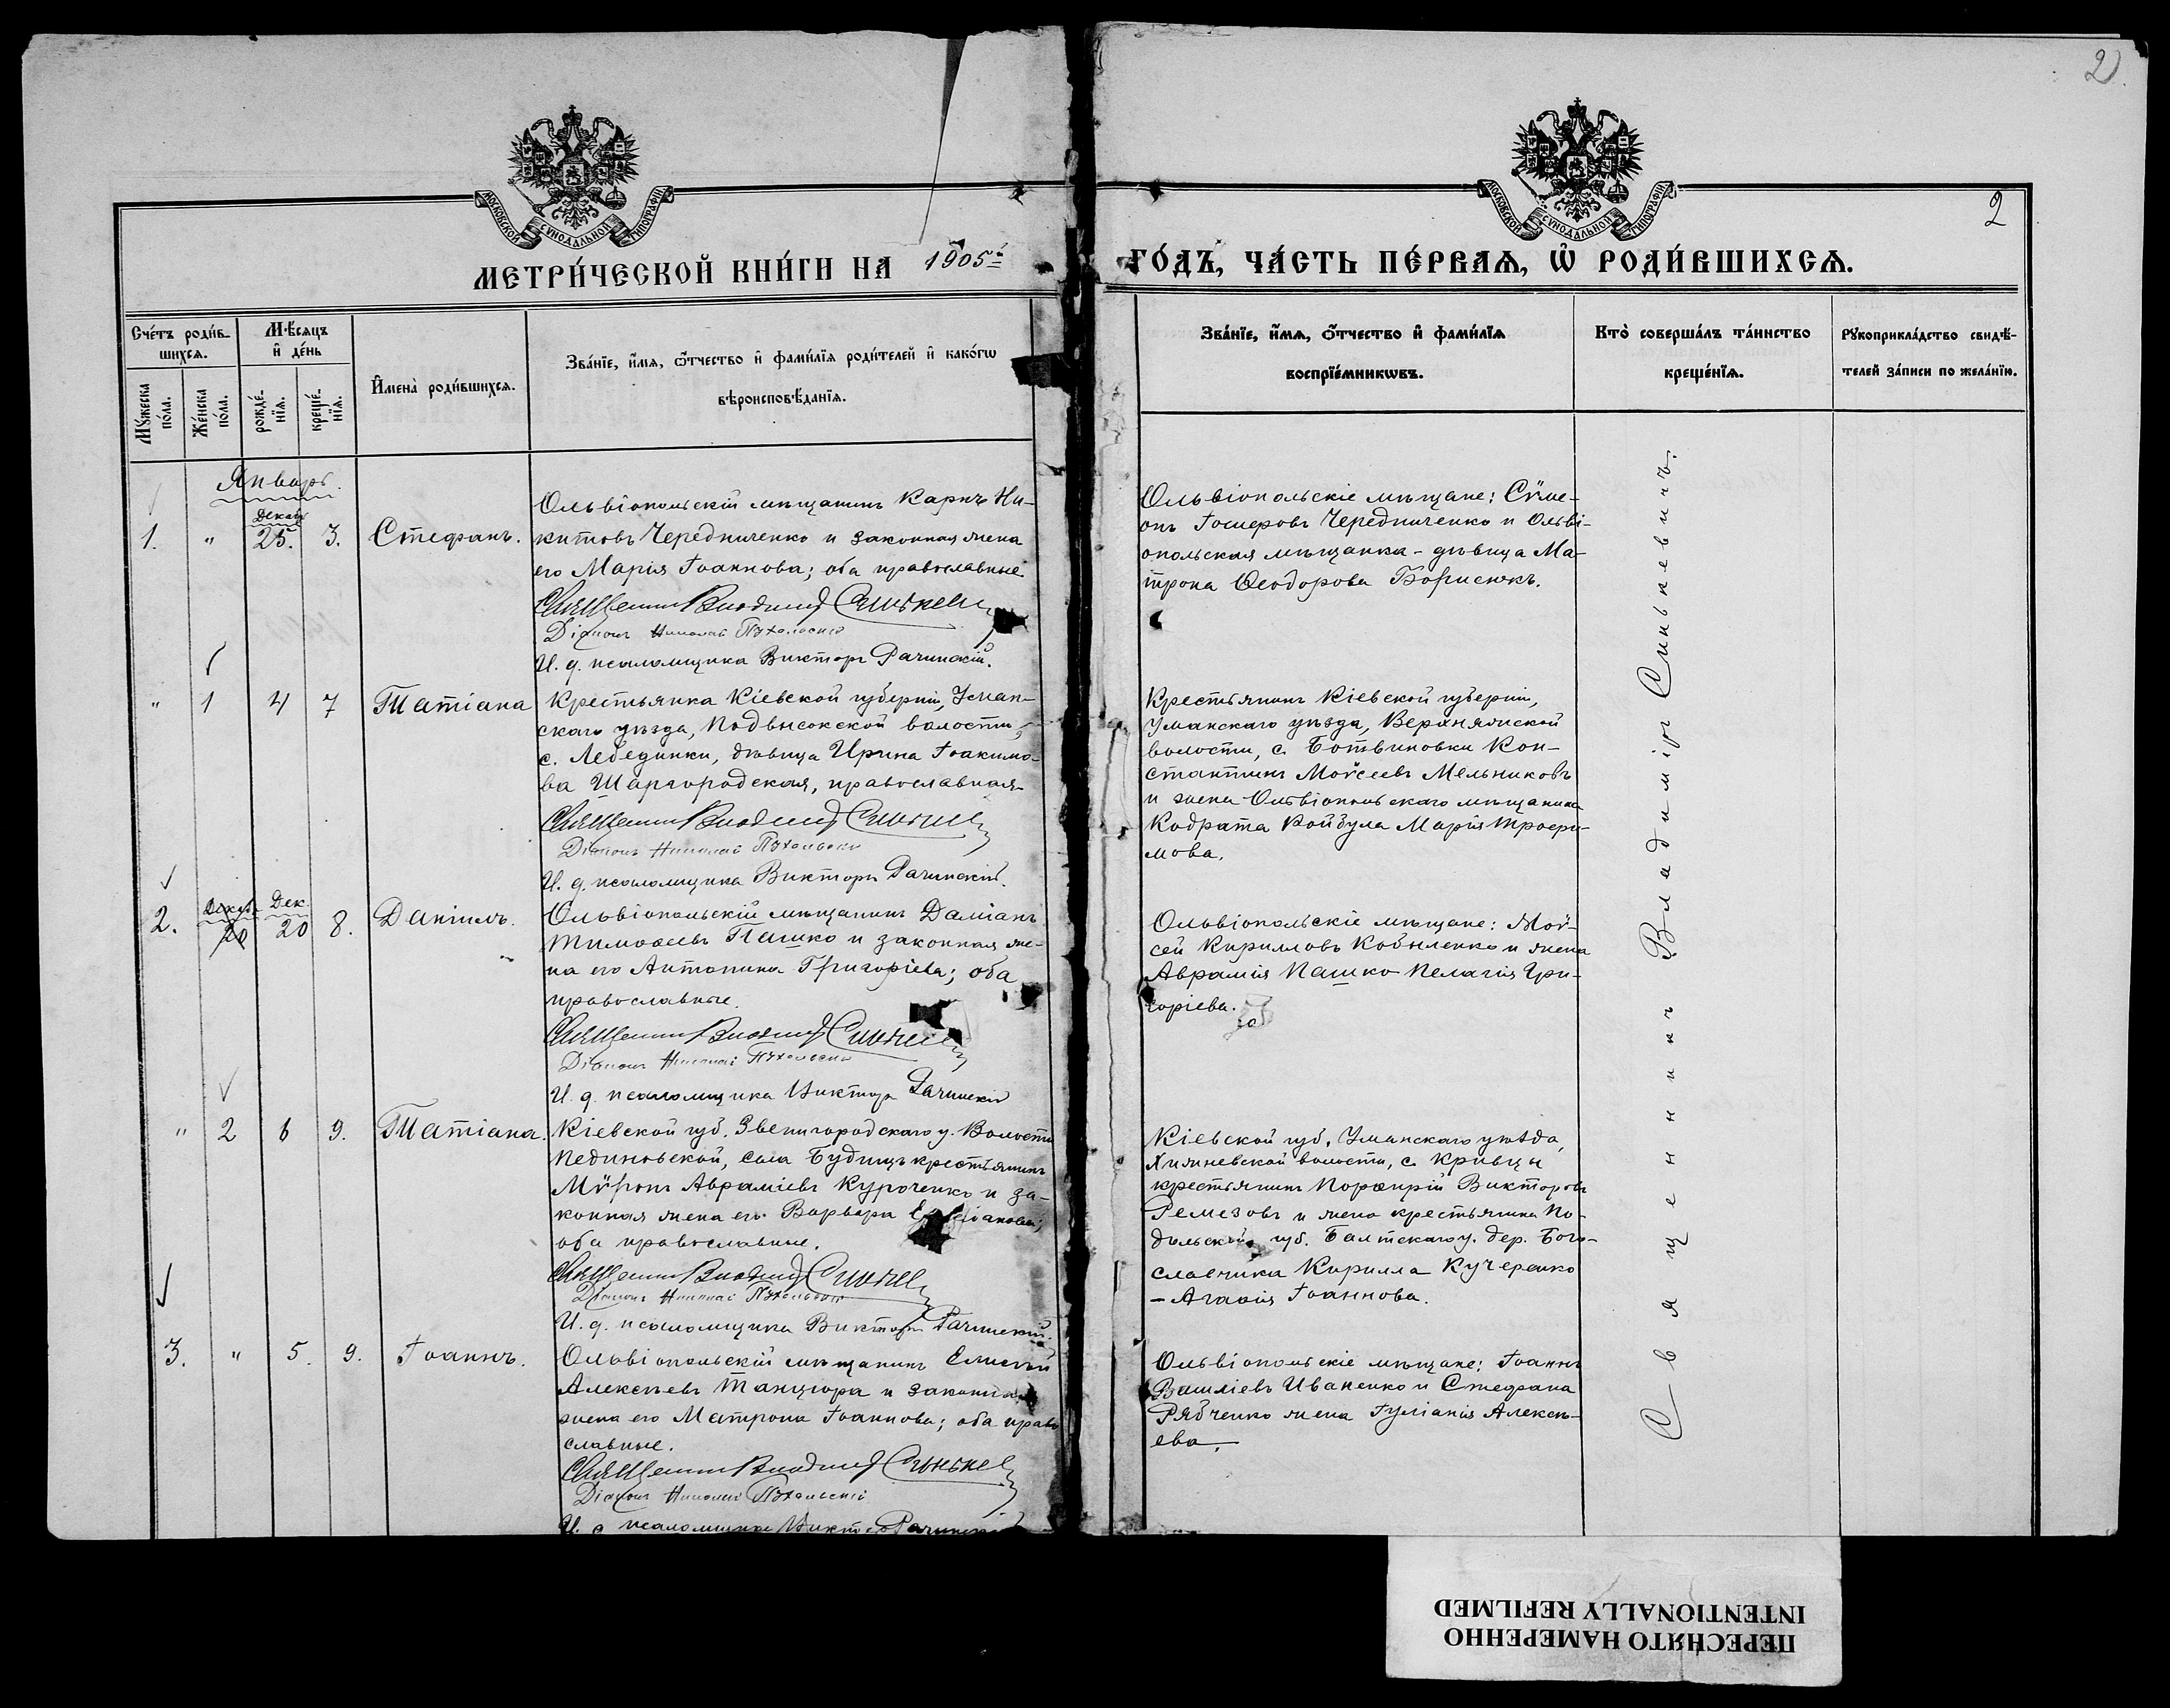 2
2
МОСКОВСКОЙ СѴНОДАЛЬНОЙ ТИПОГРАФІИ
МОСКОВСКОЙ СѴНОДАЛЬНОЙ ТИПОГРАФІИ
МЕТРИ́ЧЕСКОЙ КНИ́ГИ НА 1905й
ГО́ДЪ, ЧА́СТЬ ПЕ́РВАЯ, Ѡ РОДИ́ВШИХСЯ.
Сче́тъ роди́в-
шихся.
Мѣ́сяцъ
и де́нь
Му́жеска
по́ла.
Же́нска
по́ла.
рожде́-
нїя.
креще́-
нїя.
Имена̀ роди́вшихся.
Зва́нїе, и́мя, ѻ́тчество и фами́лїя роди́телей и како́гѡ
вѣроисповѣ́данїя.
Зва́нїе, и́мя, ѻ́тчество и фами́лїя
воспрїе́мникѡвъ.
Кто̀ соверша́лъ та́инство
креще́нїя.
Рꙋкоприкла́дство свидѣ́-
телей за́писи по жела́нїю.
Январь.
Декабр
1. " 25. 3. Стефанъ.
Ольвіопольскій мѣщанинъ Карпъ Ни-
китовъ Чередниченко и законная жена
его Марія Іоаннова; оба православные.
Священникъ Владимір Синькевич
Діаконъ Николай
И. д. псаломщика Викторъ Рачинскій.
Ольвіопольскіе мѣщане: Сѵме-
онъ Іосифовъ Чередниченко и Ольві-
опольская мѣщанка - дѣвица Ма-
трона Ѳеодорова Борисюкъ.
" 1 4 7 Татіана
Крестьянка Кіевской губерніи, Уман-
скаго уѣзда, Подвысокской волости,
с. Лебединки, дѣвица Ирина Іоакимо-
ва Шаргородская, православная
Священникъ Владимір Синькевич
Діаконъ Николай
И. д. псаломщика Викторъ Рачинскій.
Крестьянинъ Кіевской губерніи,
Уманскаго уѣзда, Верхняяской
волости, с. Ботвиновки Кон-
стантинъ Моѵсеевъ Мельниковъ
и жена Ольвіопольскаго мѣщанина
Кодрата Койбула Марія Трофи-
мова.
Декаб Дек.
2. 20 20 8. Даніилъ.
Ольвіопольскій мѣщанинъ Даміанъ
Тимоѳеевъ Пашко и законная же-
на его Антонина Григоріева; оба
православные.
Священникъ Владимір Синькевич
Діаконъ Николай
И. д. псаломщика Викторъ Рачинскій
Ольвіопольскіе мѣщане: Моѵ-
сей Кирилловъ Кобыленко и жена
Аврамія Пашко Пелагія Гри-
горіева.
" 2 6 9. Татіана.
Кіевской губ. Звенигородскаго у. Волости
Пединовской, села Будищъ крестьянинъ
Мѵронъ Авраміевъ Куроченко и за-
конная жена его Варвара
оба православные.
Священникъ Владимір Синькевич
Діаконъ Николай
И. д. псаломщика Викторъ Рачинскій.
Кіевской губ. Уманскаго уѣзда,
Хижневской волости, с. Кривцы
крестьянинъ Порфирій Викторовъ
Ремезовъ и жена крестьянина По-
дольской губ. Балтскаго у. дер. Бого-
славчика Кирилла Кучеренко
- Агаѳія Іоаннова.
3. " 5. 9. Іоаннъ.
Ольвіопольскій мѣщанинъ Елисей
Алексѣевъ Танцюра и законная
жена его Матрона Іоаннова; оба право
славные.
Священникъ Владимір Синькевич
Діаконъ Николай
И. д. псаломщика Викторъ Рачинскій
Ольвіопольскіе мѣщане: Іоаннъ
Василіевъ Иваненко и Стефана
Рябченко жена Іуліанія Алексѣ-
ева.
Священникъ Владиміръ Синькевичъ.
ПЕРЕСНЯТО НАМЕРЕННО
INTENTIONALLY REFILMED